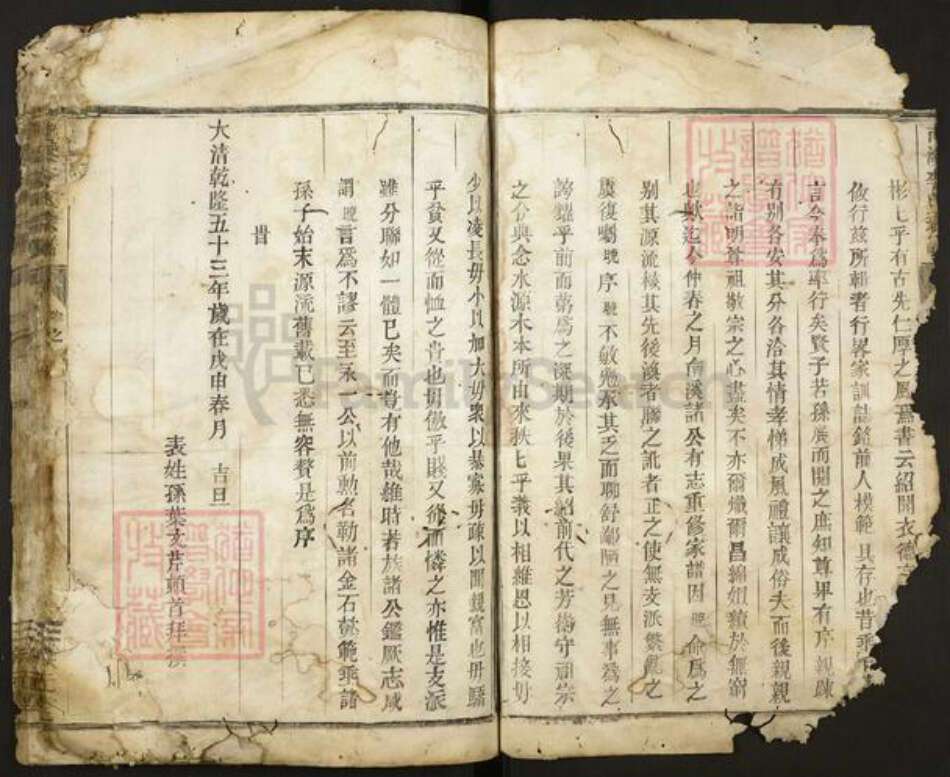 彬七乎有古先仁厚之風焉書云紹聞衣德言
攸行茲所輯者行畧家訓誌銘前人模範具存也昔乘
言今奉為率行矣賢子若孫展而閱之庶知尊卑有序親疎
有別各安其分各洽其情孝悌成風禮讓成俗夫而後親親
之誼明尊祖敬宗之心盡矣不亦爾熾爾昌綿
也歟迄今仲春之月南溪諸公有志重修家譜因晚命為之
別其源流候其先後淆者釐之訛者正之使無支派繁亂之
虞復囑晚序晚不敏勉承其乏而聊舒鄙陋之見無事為之
誇耀乎前而第為之深期於後果其紹前代之芳徽守祖宗
之令典念水源木本所由來秩七乎義以相維恩以相接毋
少以凌長毋小以加大毋衆以暴寡毋疎以間親富也毋驕
乎貧又從而恤之貴也毋傲乎賤又從而憐之亦惟是支派
雖分聯如一體已矣而豈有他哉維時若族諸公鑑厥志咸
謂晚言為不謬云至承一公以前勲名勒諸金石懿範乘諸
孫子始末源流舊載已悉無容贅是為序
旹
大清乾隆五十三年歲在戊申春月 吉旦
表姓孫葉文芹頓首拜
FamilySearch